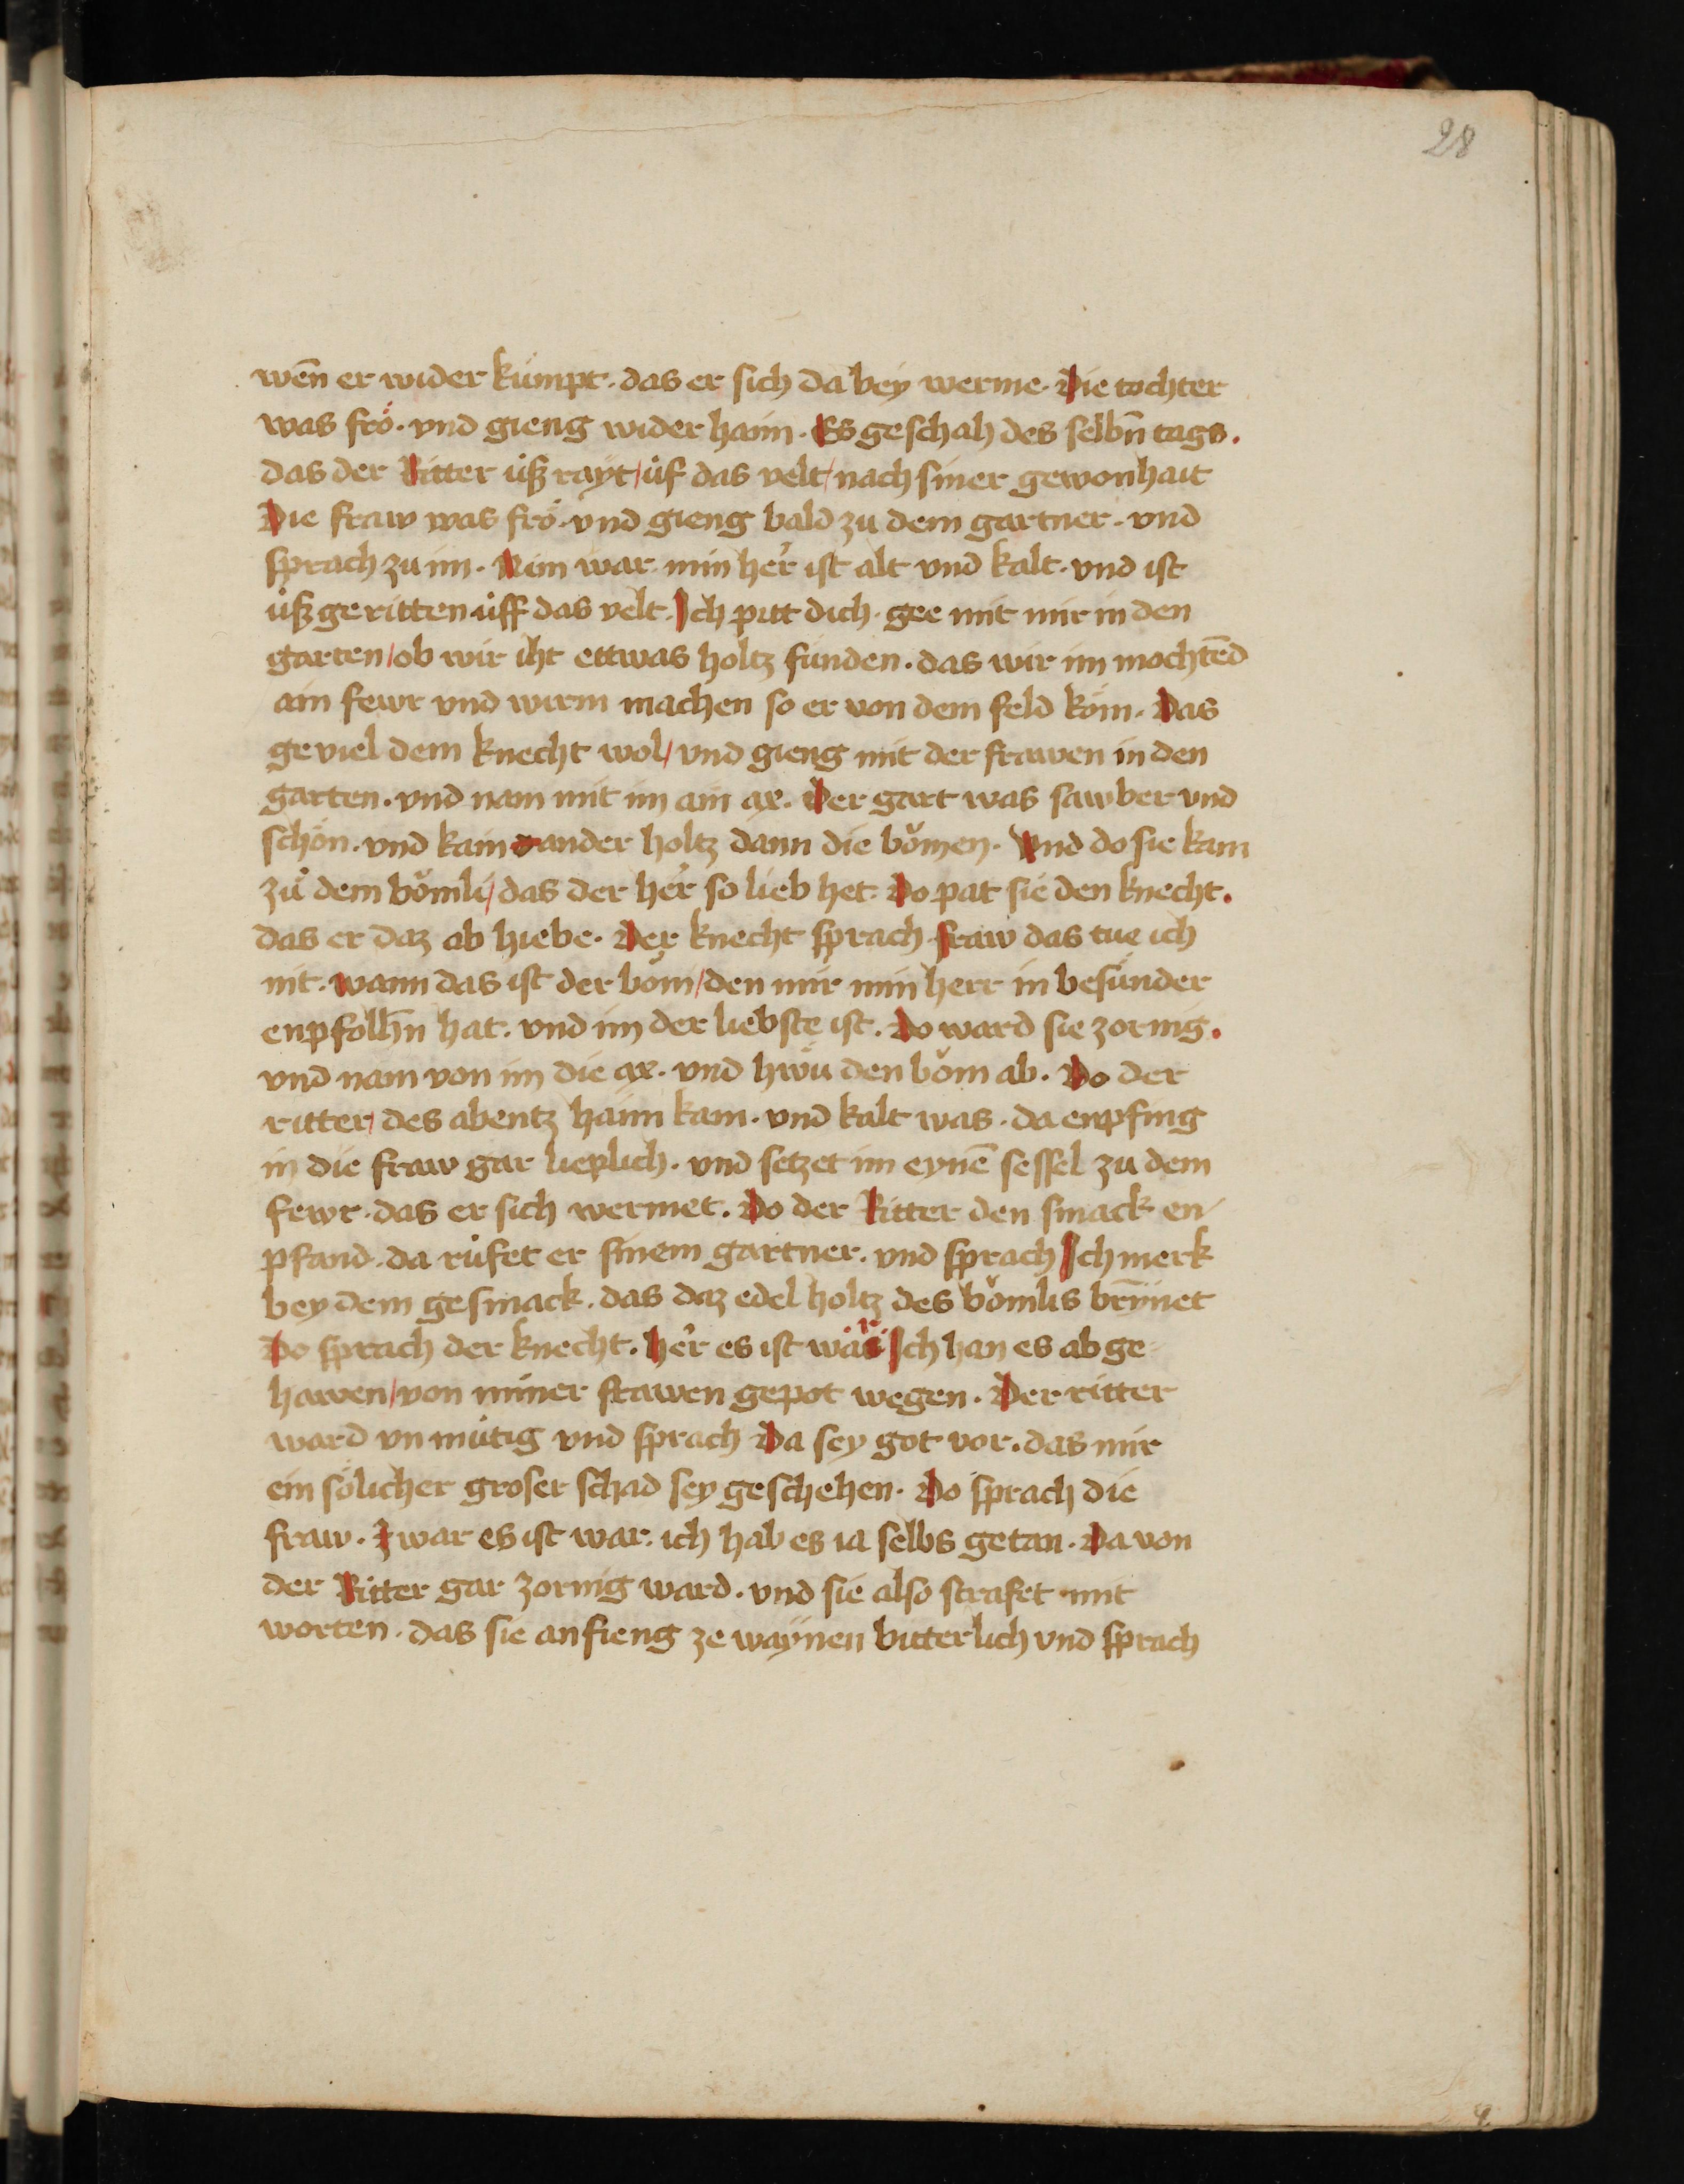 28
wen̄ er wider kumpt · das er sich da bey werme · Die tochter
was frö · vnd gieng wider haim · Es geschah des selbn̄ tags .
das der Ritter ůß rayt / ůf das velt / nach siner gewonhait
Die fraw was frö · vnd gieng bald zu dem gartner · vnd
sprach zu im · Nim war min her̕ ist alt vnd kalt · vnd ist
ůß geritten ůff das velt · Ich pitt dich · gee mit mir in den
garten / ob wir iht ettwas holtz funden · das wir im mochtēd
ain fewr vnd wirm machen so er von dem feld köm · Das
geviel dem knecht wol / vnd gieng mit der frawen in den
garten · vnd nam mit im ain ax · Der gart was sawber vnd
schön · vnd kain ander holtz dann die bömen · Vnd do sie kam
zů dem bömli / das der her̕ so lieb het · Do pat sie den knecht .
das er daz ab hiebe · Der knecht sprach fraw das tue ich
nit · wann das ist der böm / den mir min herr in besunder
enpfolhn̄ hat · vnd im der liebste ist · Do ward sie zornig .
vnd nam von im die ax · vnd hwů den böm ab · Do der
ritter / des abentz haim kam · vnd kalt was · da enpfing
in die fraw gar lieplich · vnd setzet im eynē sessel zu dem
fewr · das er sich wermet · Do der Ritter den smack en/
pfand · da růfet er sinem gartner · vnd sprach Ich merk
bey dem gesmack · das daz edel holtz des bömlis brȳnet
Do sprach der knecht · her̕ es ist war Ich han es ab ge-
hawen / von miner frawen gepot wegen · Der ritter
ward vn mütig vnd sprach Da sey got vor · das mir
ein sölicher groser schad sey geschehen · Do sprach die
fraw · Zwar es ist war · ich hab es ia selbs getan · Da von
der Ritter gar zornig ward · vnd sie also strafet mit
worten · das sie anfieng ze waÿnen bitterlich vnd sprach